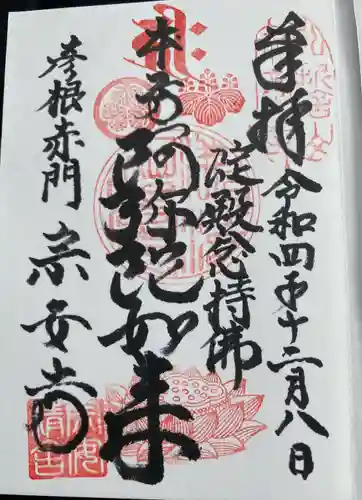 奉拝
令和四年十二月八日
淀殿念持佛
阿弥陀如来
彦根赤門
宗安寺